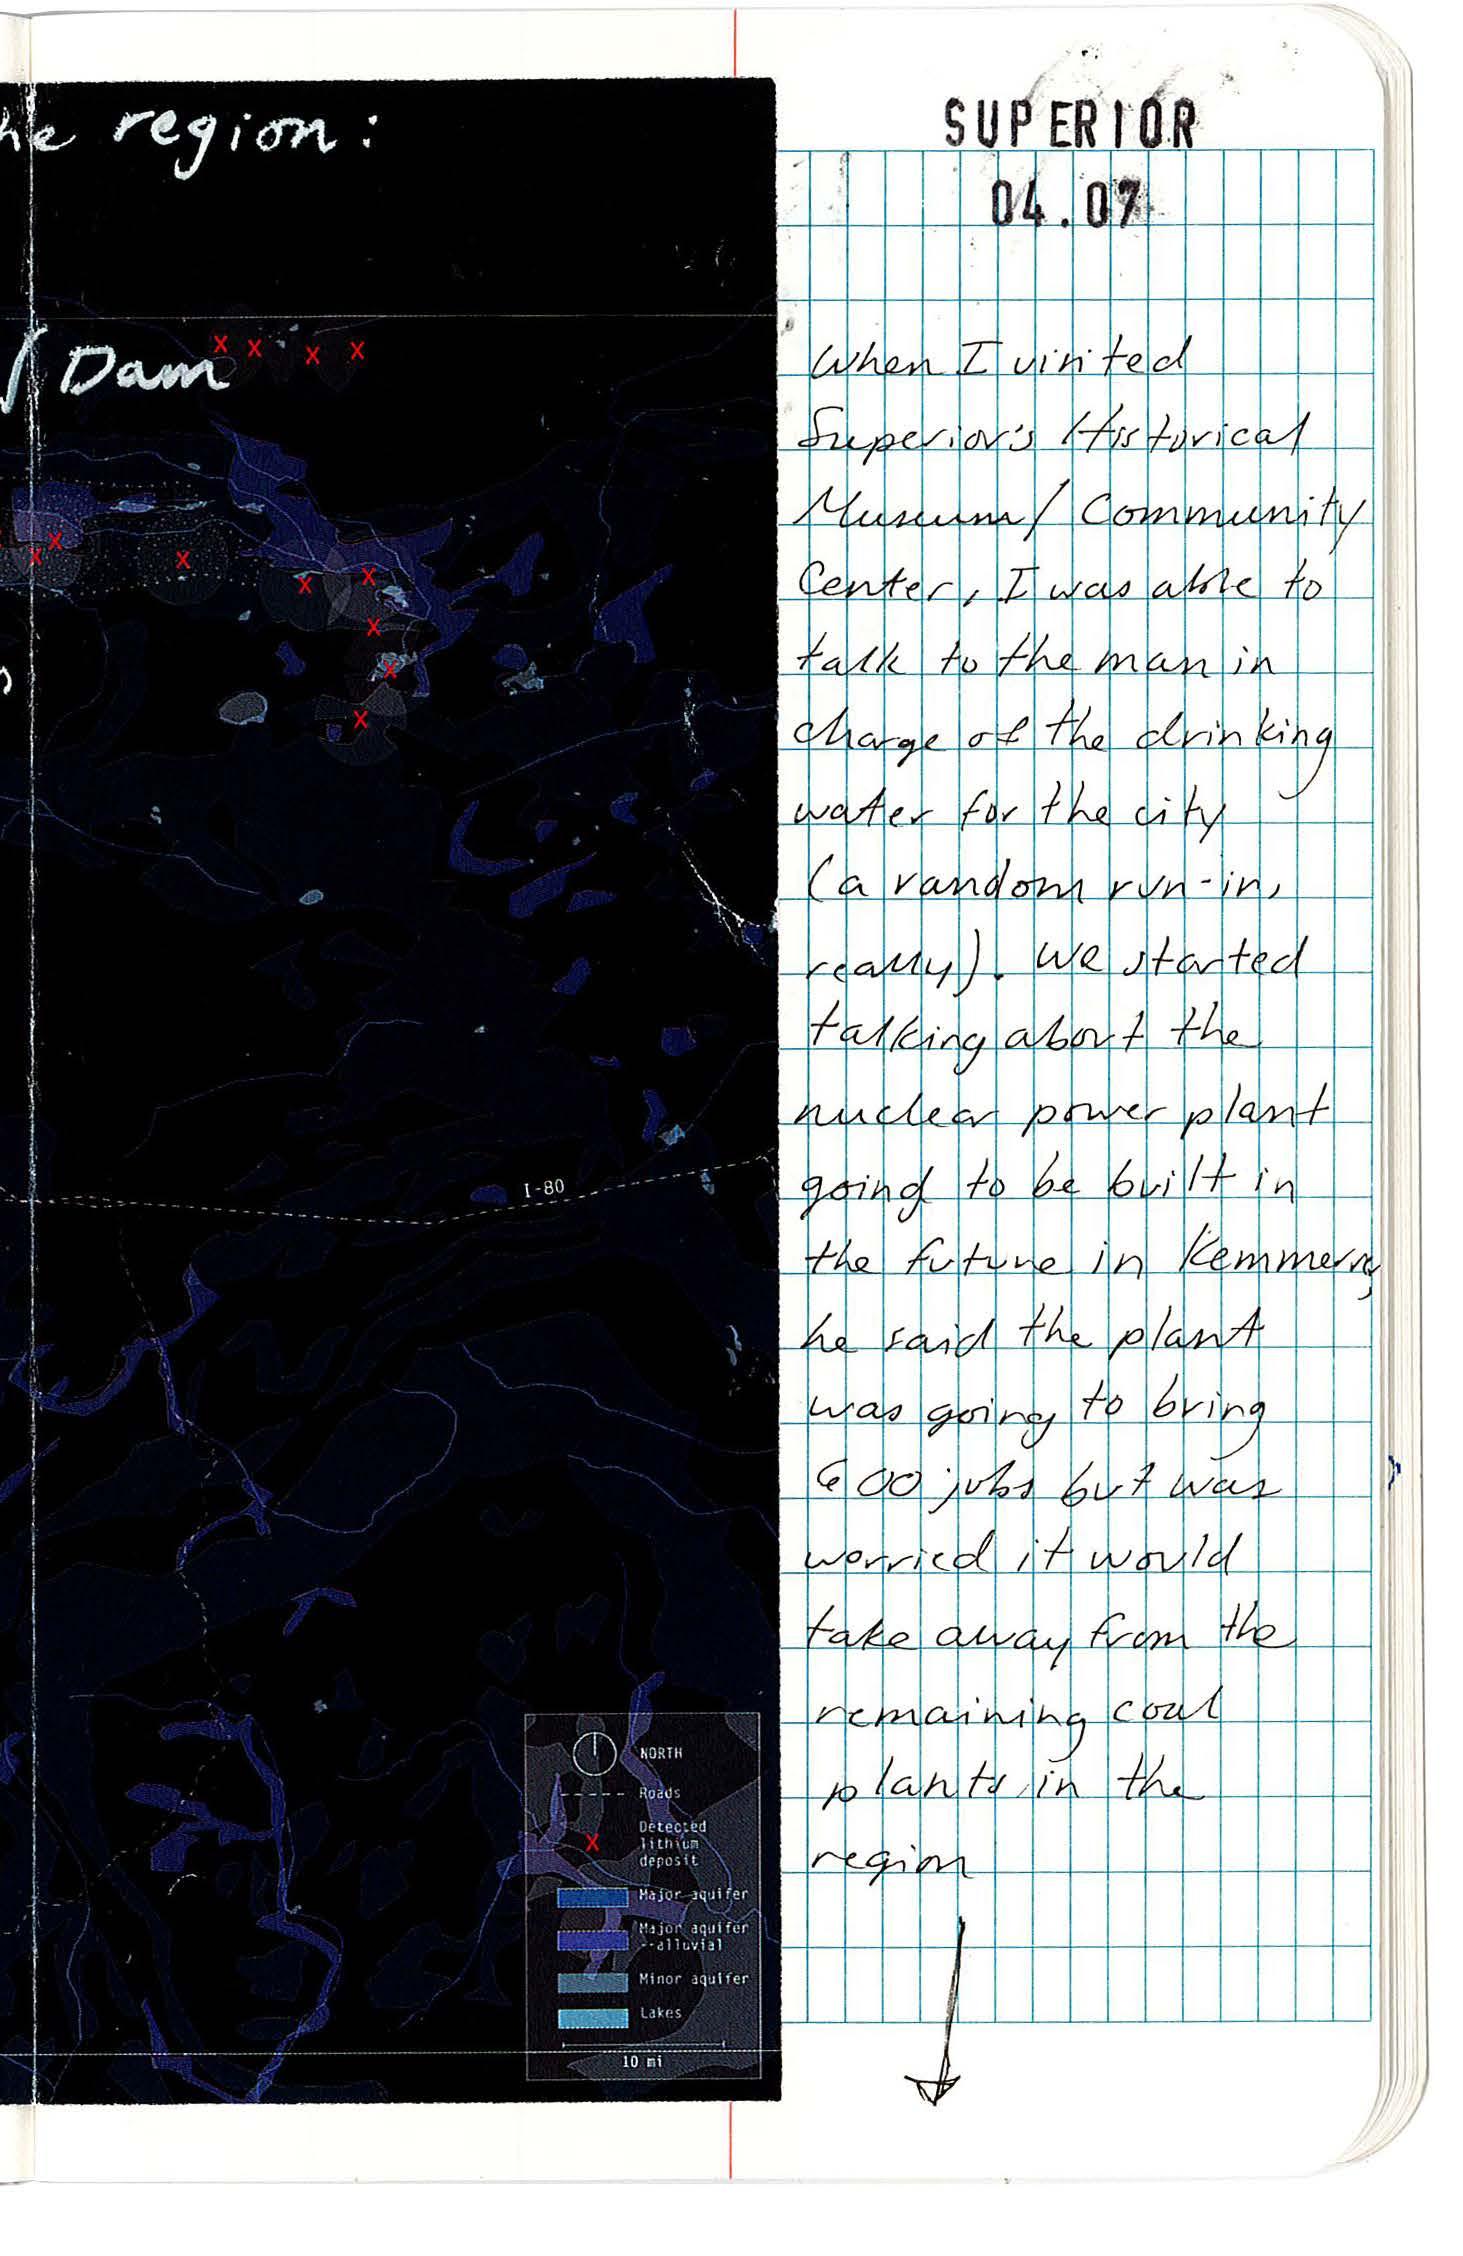 he region:
/ Dam
s
I-80
NORTH
Roads
Detected
lithium
deposit
Major aquifer
Major aquifer
--alluvial
Minor aquifer
Lakes
10 mi
SUPERIOR
04.07
When I visited
Superior's Historical
Museum/ Community
Center, I was able to
talk to the man in
charge of the drinking
water for the city
(a random run-in,
really). We started
talking about the
nuclear power plant
going to be built in
the future in Kemmerer,
he said the plant
was going to bring
600 jobs but was
worried it would
take away from the
remaining coal
plants in the
region